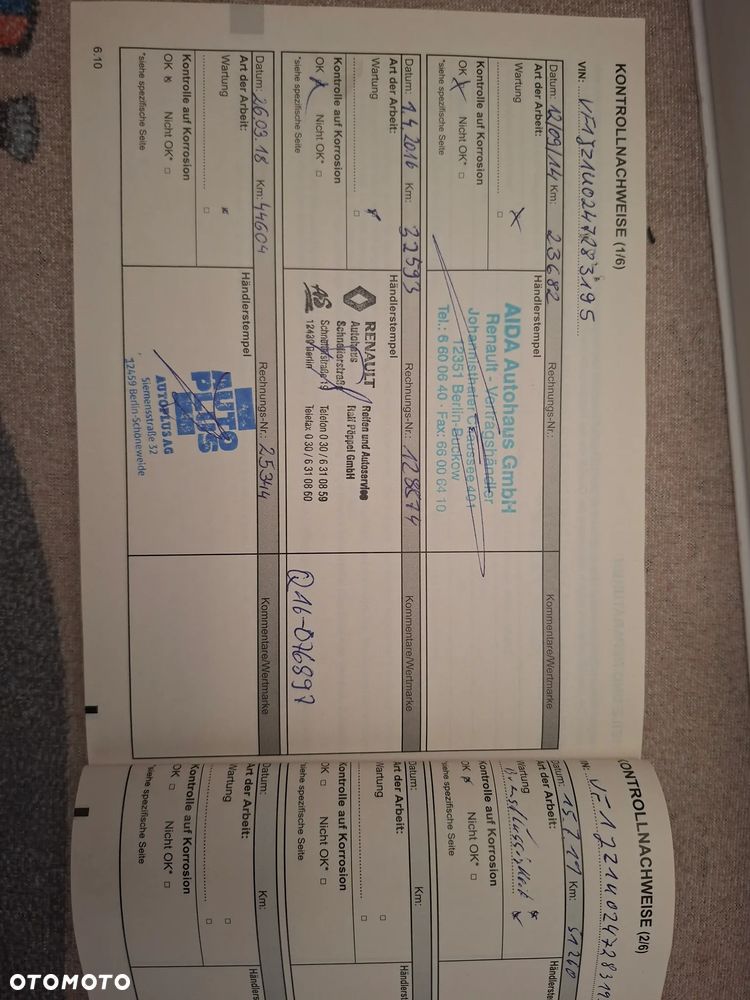 KONTROLLNACHWEISE (1/6)
VIN: VF1JZ1U0247283195
Datum: 12/09/14 Km: 23682
Händlerstempel
Rechnungs-Nr.:
Kommentare/Wertmarke
Art der Arbeit:
Wartung
Kontrolle auf Korrosion
OK Nicht OK*
*siehe spezifische Seite
AIDA Autohaus GmbH
Renault - Vertragshändler
Johannisthaler Chaussee 401
12351 Berlin-Buckow
Tel.: 6 60 06 40 · Fax: 66 00 64 10
Datum: 1.4.2016 Km: 32593
Händlerstempel
Rechnungs-Nr.: 128574
Kommentare/Wertmarke
Art der Arbeit:
Wartung
Kontrolle auf Korrosion
OK Nicht OK*
*siehe spezifische Seite
RENAULT
Autohaus
Schnellerstraße
Schnellerstraße 19
12439 Berlin
Reifen und Autoservice
Ralf Pöppel GmbH
Telefon 0 30 / 6 31 08 59
Telefax 0 30 / 6 31 08 60
Q16-076897
Datum: 26.03.18 Km: 44604
Händlerstempel
Rechnungs-Nr.: 25344
Kommentare/Wertmarke
Art der Arbeit:
Wartung
Kontrolle auf Korrosion
OK Nicht OK*
*siehe spezifische Seite
AUTO
PLUS
AUTOPLUS AG
Siemensstraße 32
12459 Berlin-Schöneweide
6.10
KONTROLLNACHWEISE (2/6)
VF1JZ1U024728319
Datum: 15.7.19 Km: 51260
Art der Arbeit:
Wartung
Bremsflüssigkeit
Kontrolle auf Korrosion
OK Nicht OK*
*siehe spezifische Seite
Händlerste
Datum: Km:
Art der Arbeit:
Wartung
Kontrolle auf Korrosion
OK Nicht OK*
*siehe spezifische Seite
Händlerste
Datum: Km:
Art der Arbeit:
Wartung
Kontrolle auf Korrosion
OK Nicht OK*
*siehe spezifische Seite
Händlers
OTOMOTO